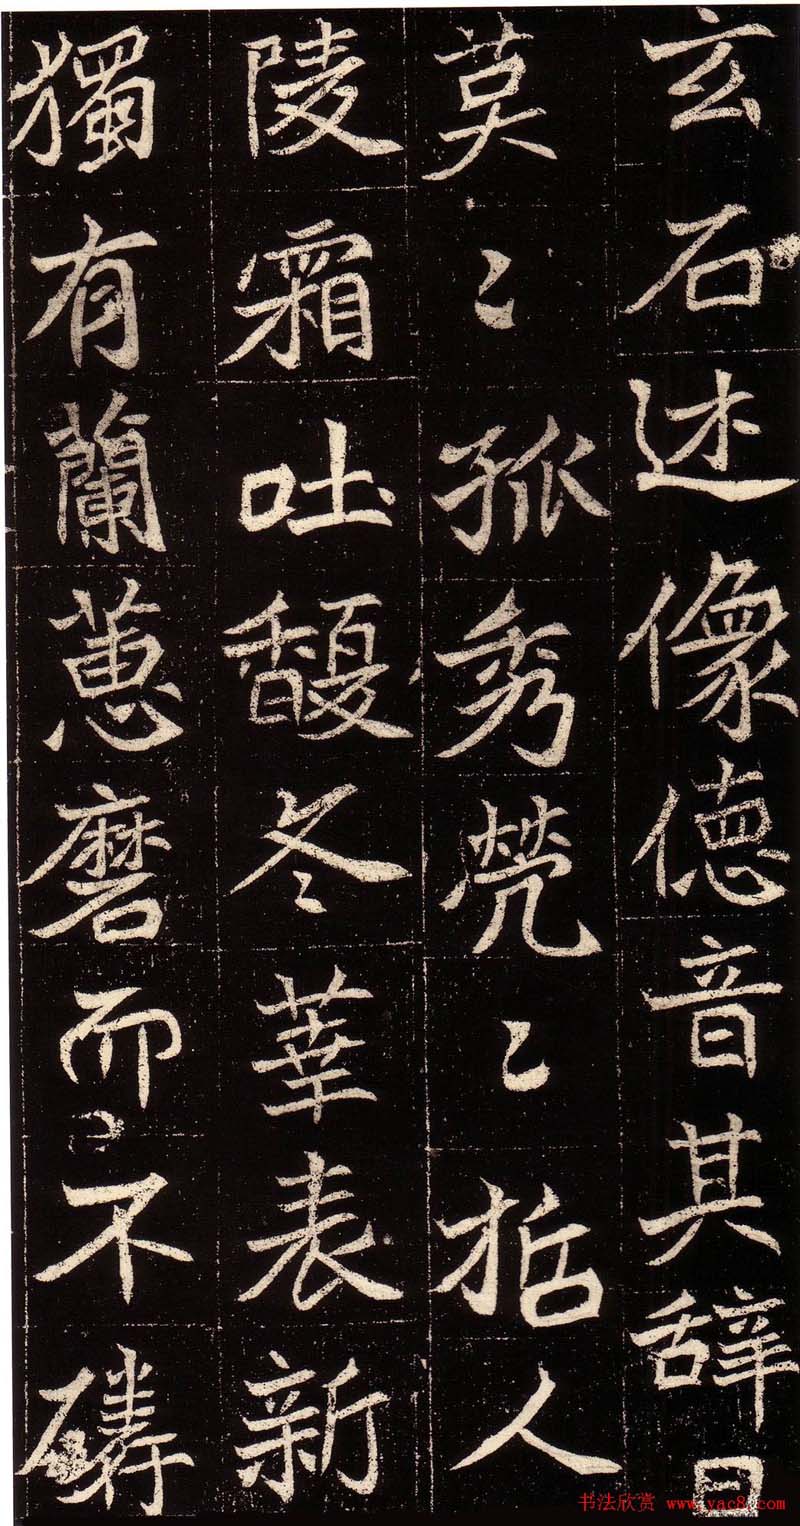 玄石述像德音其辞曰
莫〻孤秀煢〻哲人
陵霜吐馥冬華表新
獨有蘭蕙磨而不磷
书法欣赏 www.yac8.com